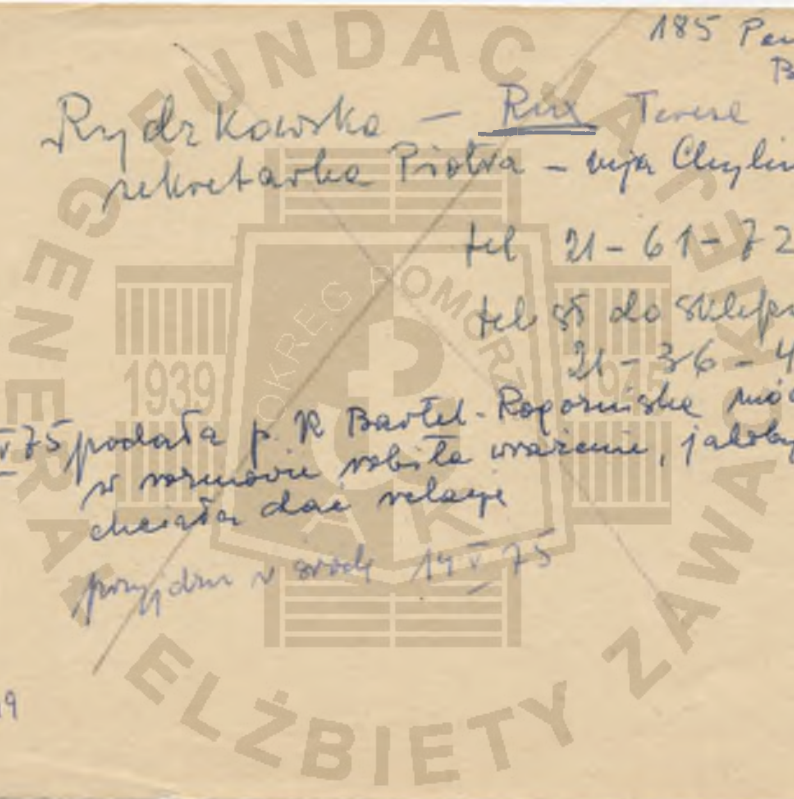 185 Pom
B
Rydzkowska – Rux Teresa
sekretarka Piotra – wija Chylin
tel 21-61-72
tel st do sklepu
21-36-4
V 75 podała p. R Bartel-Rogozińska
w rozmowie robiła wrażenie, jakoby
chciała dać relację
przyjdzie w środę 14 V 75
19
FUNDACJA GENERAŁ ELŻBIETY ZAWACKIEJ
OKRĘG POMORZE
1939
1945
AK